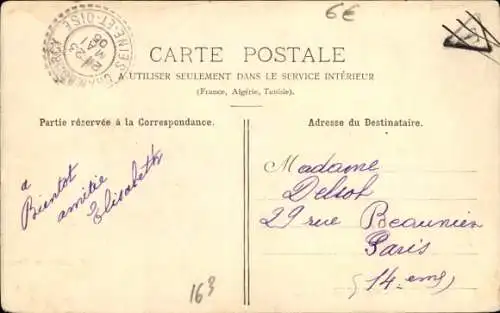 6€
SEINE-ET-OISE
CARTE POSTALE
A UTILISER SEULEMENT DANS LE SERVICE INTÉRIEUR
(France, Algérie, Tunisie).
Partie réservée à la Correspondance.
Adresse du Destinataire.
a
Bientot
amitié
Elisabeth
Madame
Delsol
29 rue Beaunier
Paris
(14-eme)
163